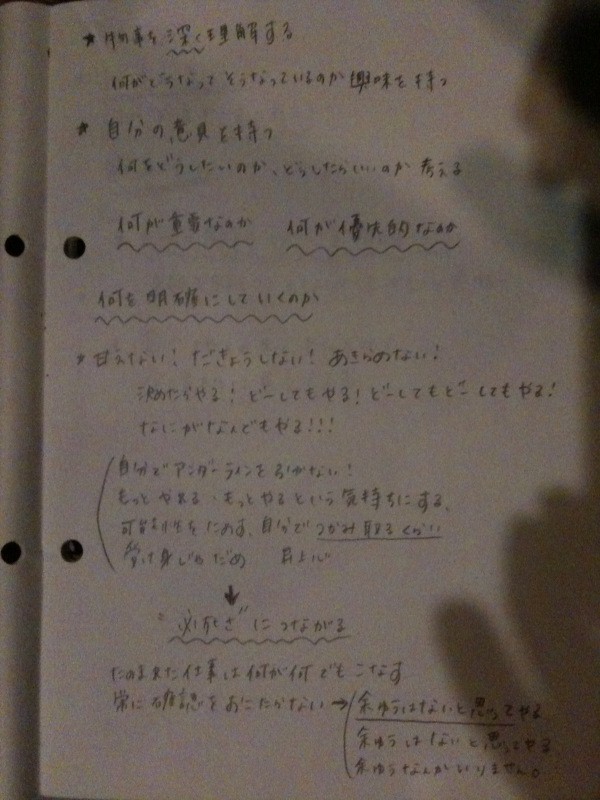 ★ 物事を深く理解する
何がどうなってそうなっているのか興味を持つ
★ 自分の意見を持つ
何をどうしたいのか、どうしたらいいのか考える
何が重要なのか 何が優先的なのか
何を明確にしていくのか
★ 甘えない! だきょうしない! あきらめない!
決めたらやる! どーしてもやる! どーしてもどーしてもやる!
なにがなんでもやる!!!
自分でアンダーラインを引かない!
もっとやれる・もっとやるという気持ちにする、
可能性をためす、自分でつかみ取るくらい
受け身じゃだめ
↓
"必死さ"につながる
たのまれた仕事は何が何でもこなす
常に確認をおこたらない → 余ゆうはないと思ってやる
余ゆうはないと思ってやる
余ゆうなんかいりません。